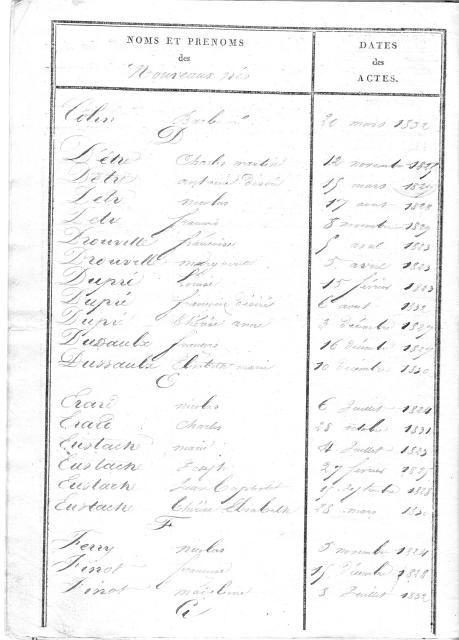 NOMS ET PRENOMS
des
Nouveaux nés
DATES
des
ACTES.
Colin Barbe 20 mars 1832
D
Détré Charles martin 12 novembre
Détré antoine désiré 15 mars
Détré nicolas 17 aout 1828
Détré francois 8 novembre 1829
Drouville francoise avril 1823
Drouville marguerite 5 avril 1823
Dupré Louise 15 février 1823
Dupré francois désiré 6 aout 1832
Dupré thérèse anne 3 décembre 1827
Dussaulx francois 16 décembre 1827
Dussaulx Elisabeth marie 10 décembre 1830
E
Erard nicolas 6 Juillet 1824
Erard Charles 28 octobre 1831
Eustache marie 4 Juillet 1823
Eustache Joseph 27 février 1825
Eustache Septembre 1828
Eustache Thérèse Elisabeth 25 mars
F
Ferry nicolas 5 novembre 1824
Finot francoise 15 décembre 1828
Finot madeleine 3 Juillet 1832
G